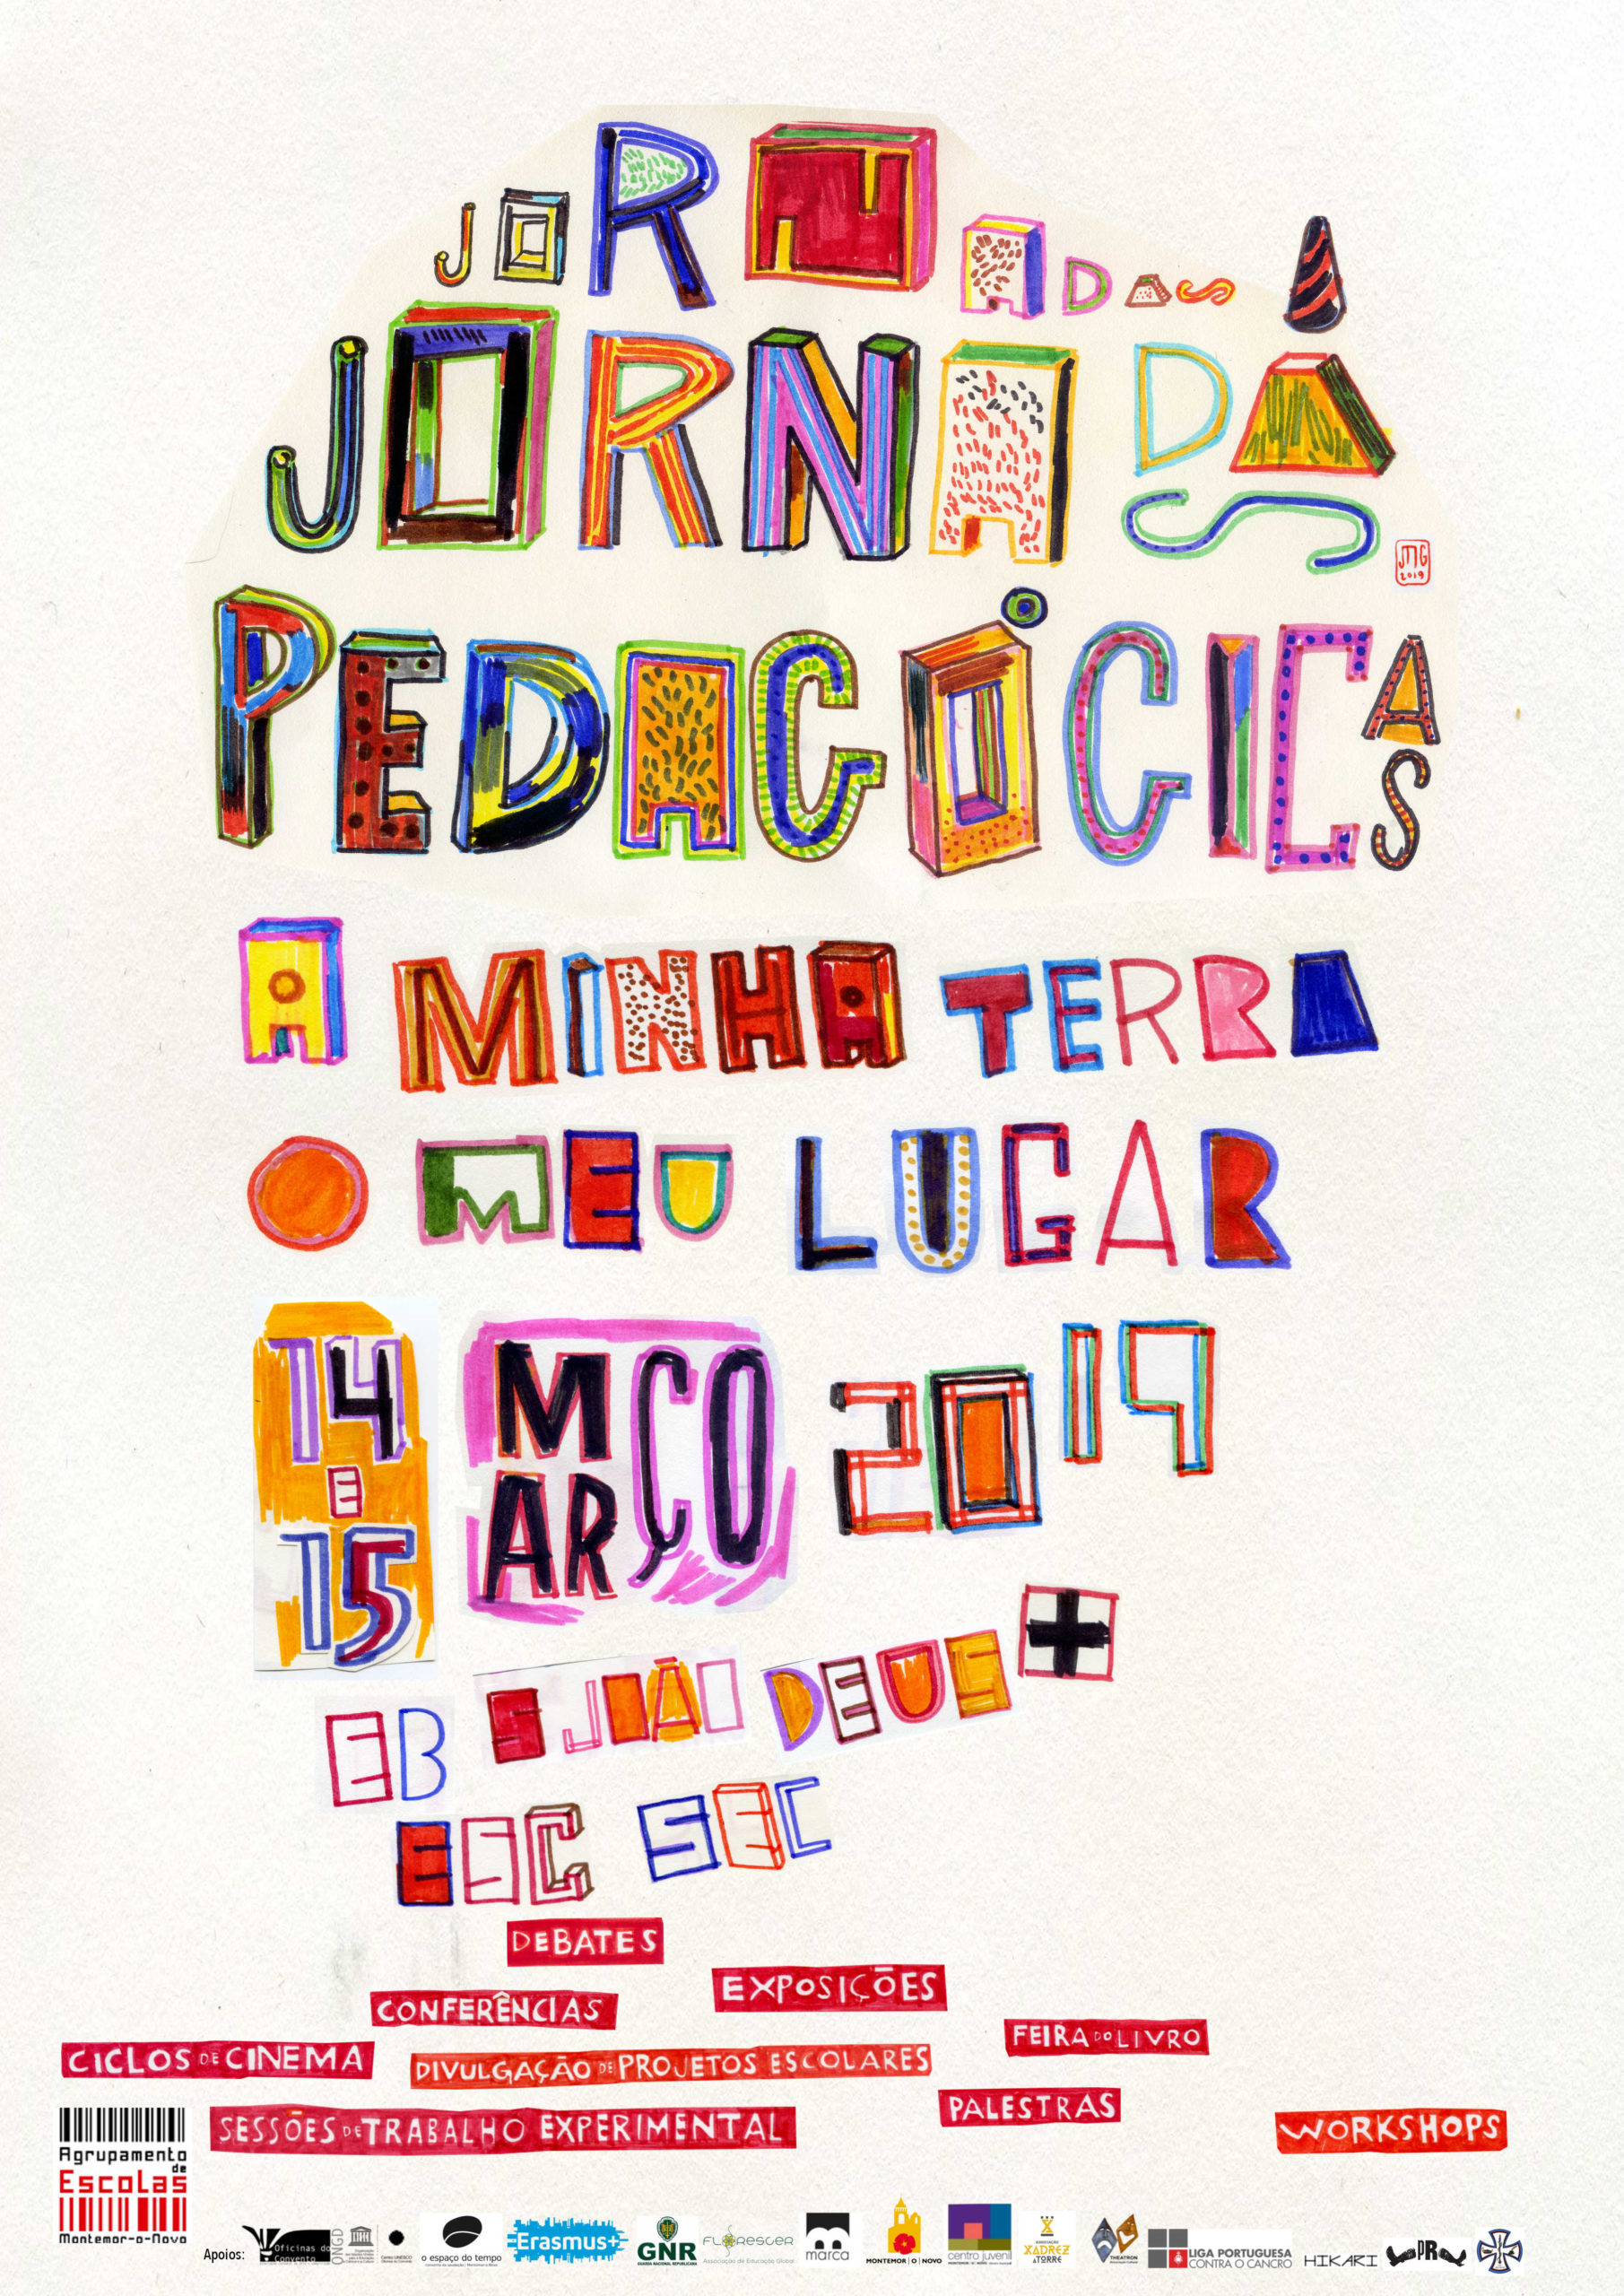 JORNADAS
JORNADAS
PEDAGÓGICAS
A MINHA TERRA
O MEU LUGAR
14 E 15 MARÇO 2019
EB S JOÃO DEUS +
ESC SEC
DEBATES
EXPOSIÇÕES
CONFERÊNCIAS
FEIRA DO LIVRO
CICLOS DE CINEMA
DIVULGAÇÃO DE PROJETOS ESCOLARES
PALESTRAS
SESSÕES DE TRABALHO EXPERIMENTAL
WORKSHOPS
Agrupamento
de
Escolas
Montemor-o-Novo
Apoios:
Oficinas do Convento
ONGD
o espaço do tempo
Erasmus+
GNR
GUARDA NACIONAL REPUBLICANA
FLORESCER
Associação de Educação Global
marca
MONTEMOR | O | NOVO
centro juvenil
ASSOCIAÇÃO
XADREZ
A TORRE
THEATRON
LIGA PORTUGUESA
CONTRA O CANCRO
HIKARI